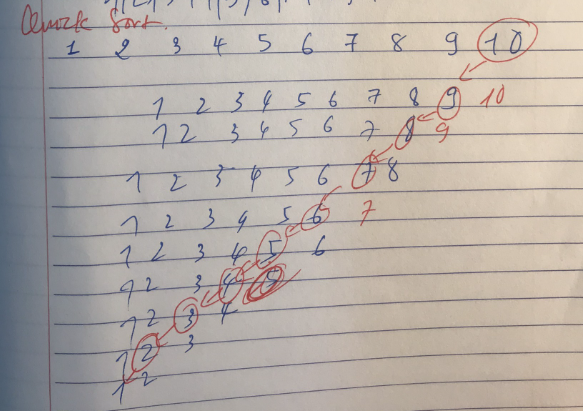 Quick Sort.
1 2 3 4 5 6 7 8 9 10
1 2 3 4 5 6 7 8 9 10
1 2 3 4 5 6 7 8 9
1 2 3 4 5 6 7 8
1 2 3 4 5 6 7
1 2 3 4 5 6
1 2 3 4 5
1 2 3 4
1 2 3
1 2